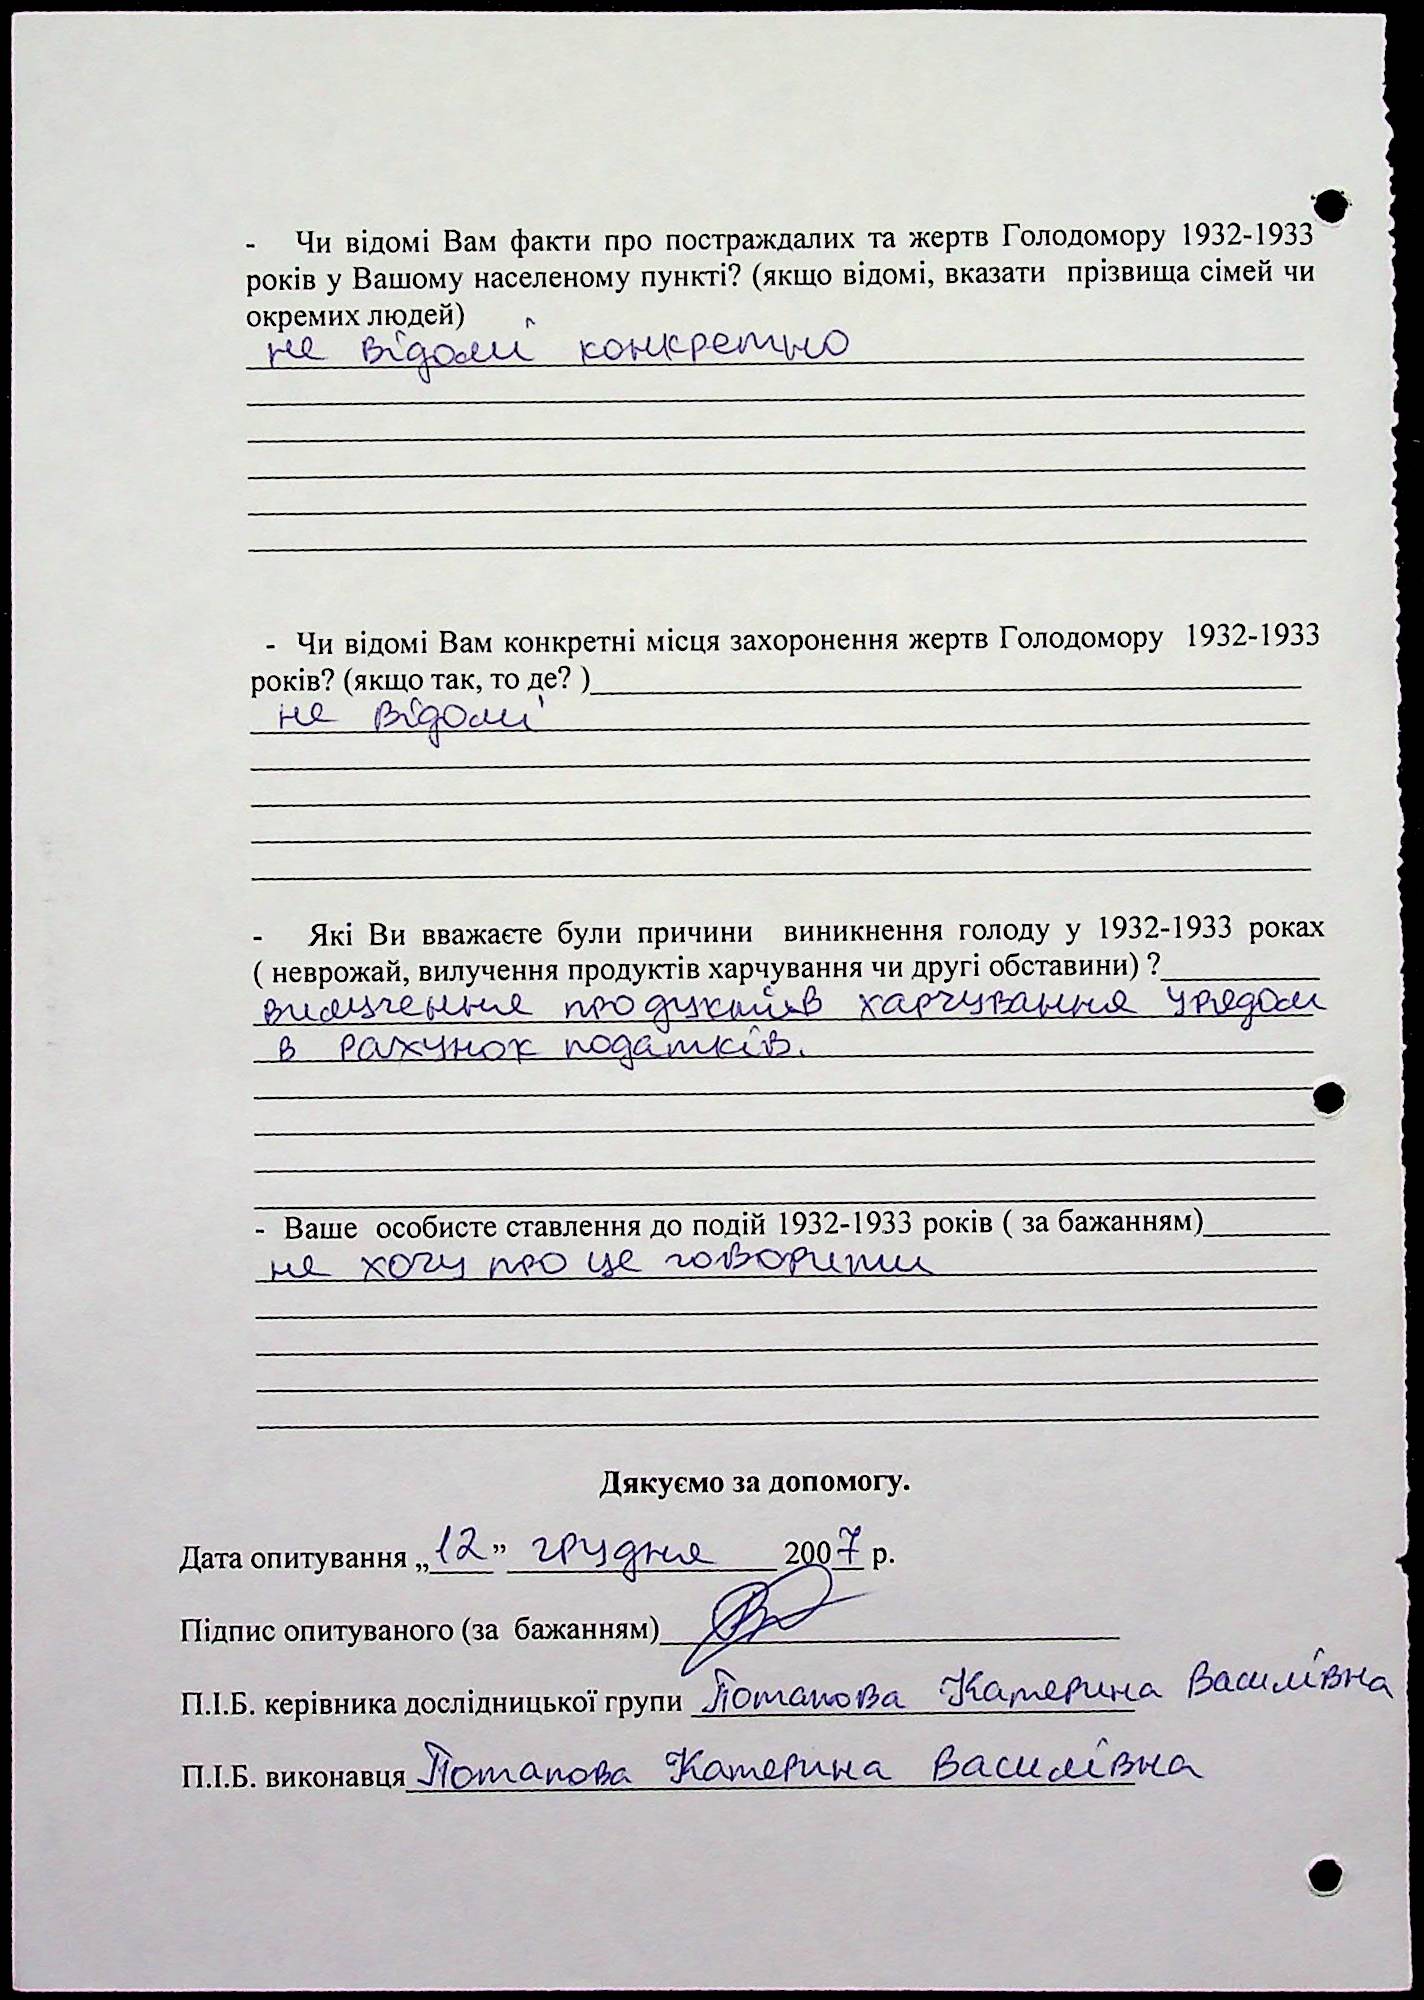 - Чи відомі Вам факти про постраждалих та жертв Голодомору 1932-1933
років у Вашому населеному пункті? (якщо відомі, вказати прізвища сімей чи
окремих людей)
не відомі конкретно
- Чи відомі Вам конкретні місця захоронення жертв Голодомору 1932-1933
років? (якщо так, то де? )
не відомі
- Які Ви вважаєте були причини виникнення голоду у 1932-1933 роках
( неврожай, вилучення продуктів харчування чи другі обставини) ?
вилучення продуктів харчування урядом
в рахунок податків.
- Ваше особисте ставлення до подій 1932-1933 років ( за бажанням)
не хочу про це говорити
Дякуємо за допомогу.
Дата опитування „12” грудня 2007 р.
Підпис опитуваного (за бажанням)
П.І.Б. керівника дослідницької групи Потапова Катерина Василівна
П.І.Б. виконавця Потапова Катерина Василівна